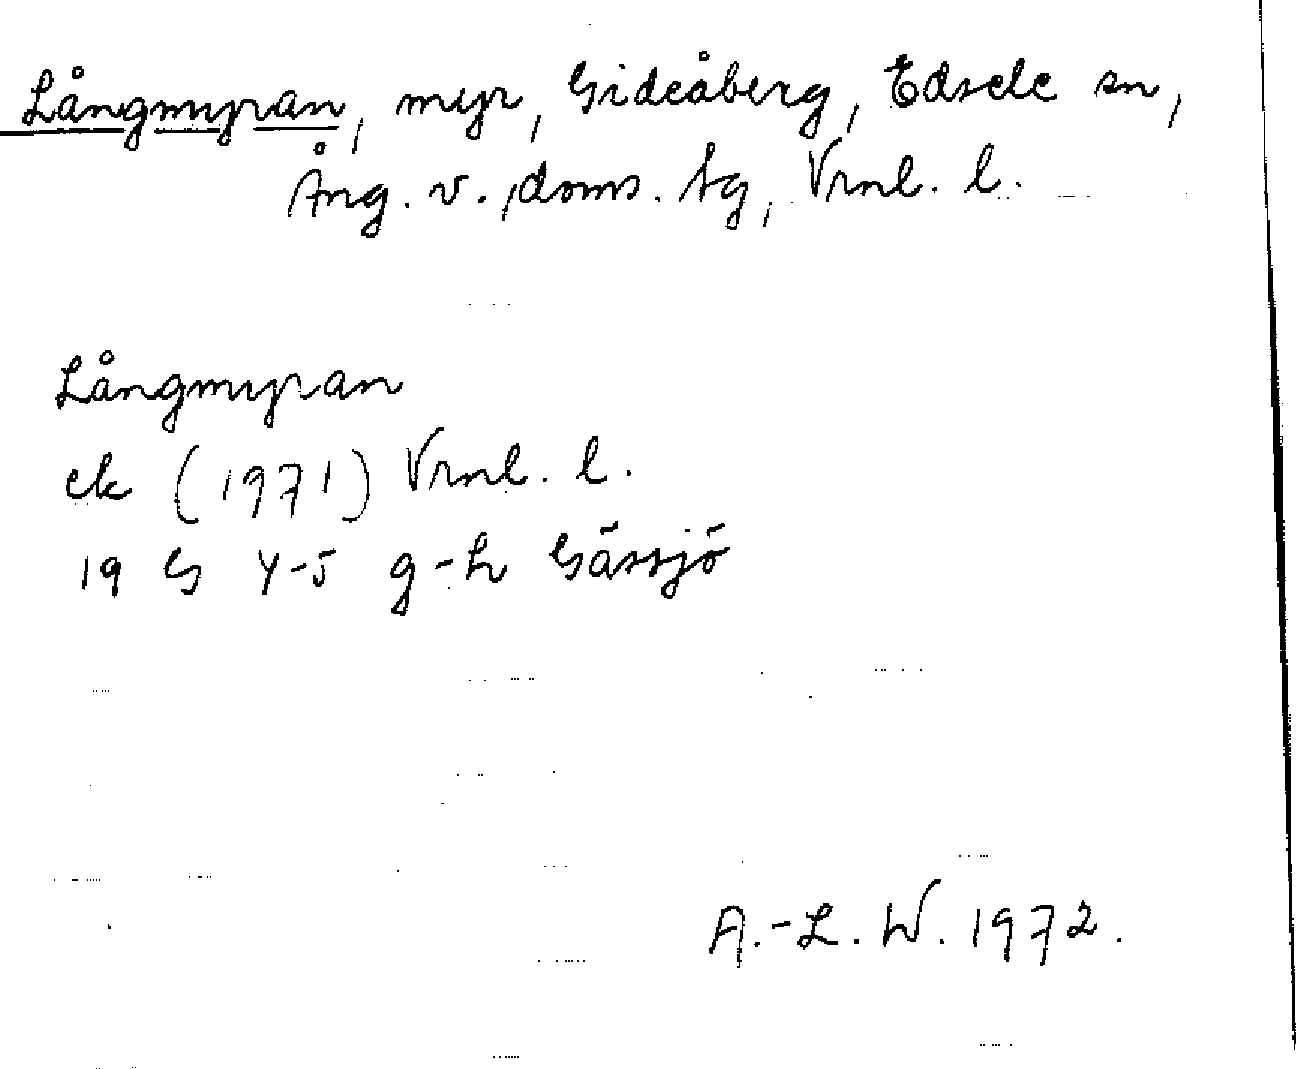 Långmyran, myr, Gideåberg, Edsele sn,
Ång. v., doms. tg, Vrnl. l.
Långmyran
ek (1971) Vrnl. l.
19 G 4-5 g-h Gåssjö
A.-L. W. 1972.